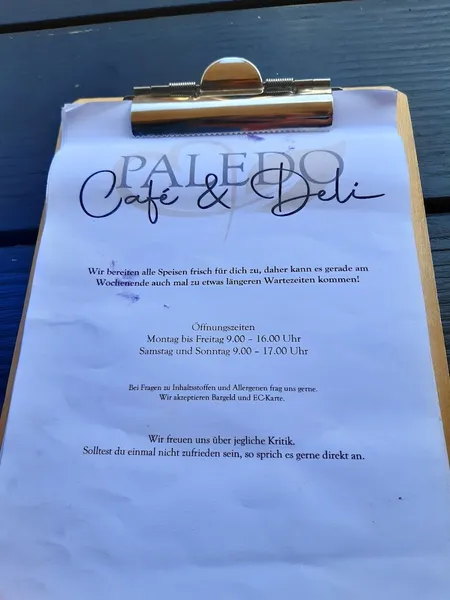 PALEDO
Café & Deli
Wir bereiten alle Speisen frisch für dich zu, daher kann es gerade am
Wochenende auch mal zu etwas längeren Wartezeiten kommen!
Öffnungszeiten
Montag bis Freitag 9.00 – 16.00 Uhr
Samstag und Sonntag 9.00 – 17.00 Uhr
Bei Fragen zu Inhaltsstoffen und Allergenen frag uns gerne.
Wir akzeptieren Bargeld und EC-Karte.
Wir freuen uns über jegliche Kritik.
Solltest du einmal nicht zufrieden sein, so sprich es gerne direkt an.